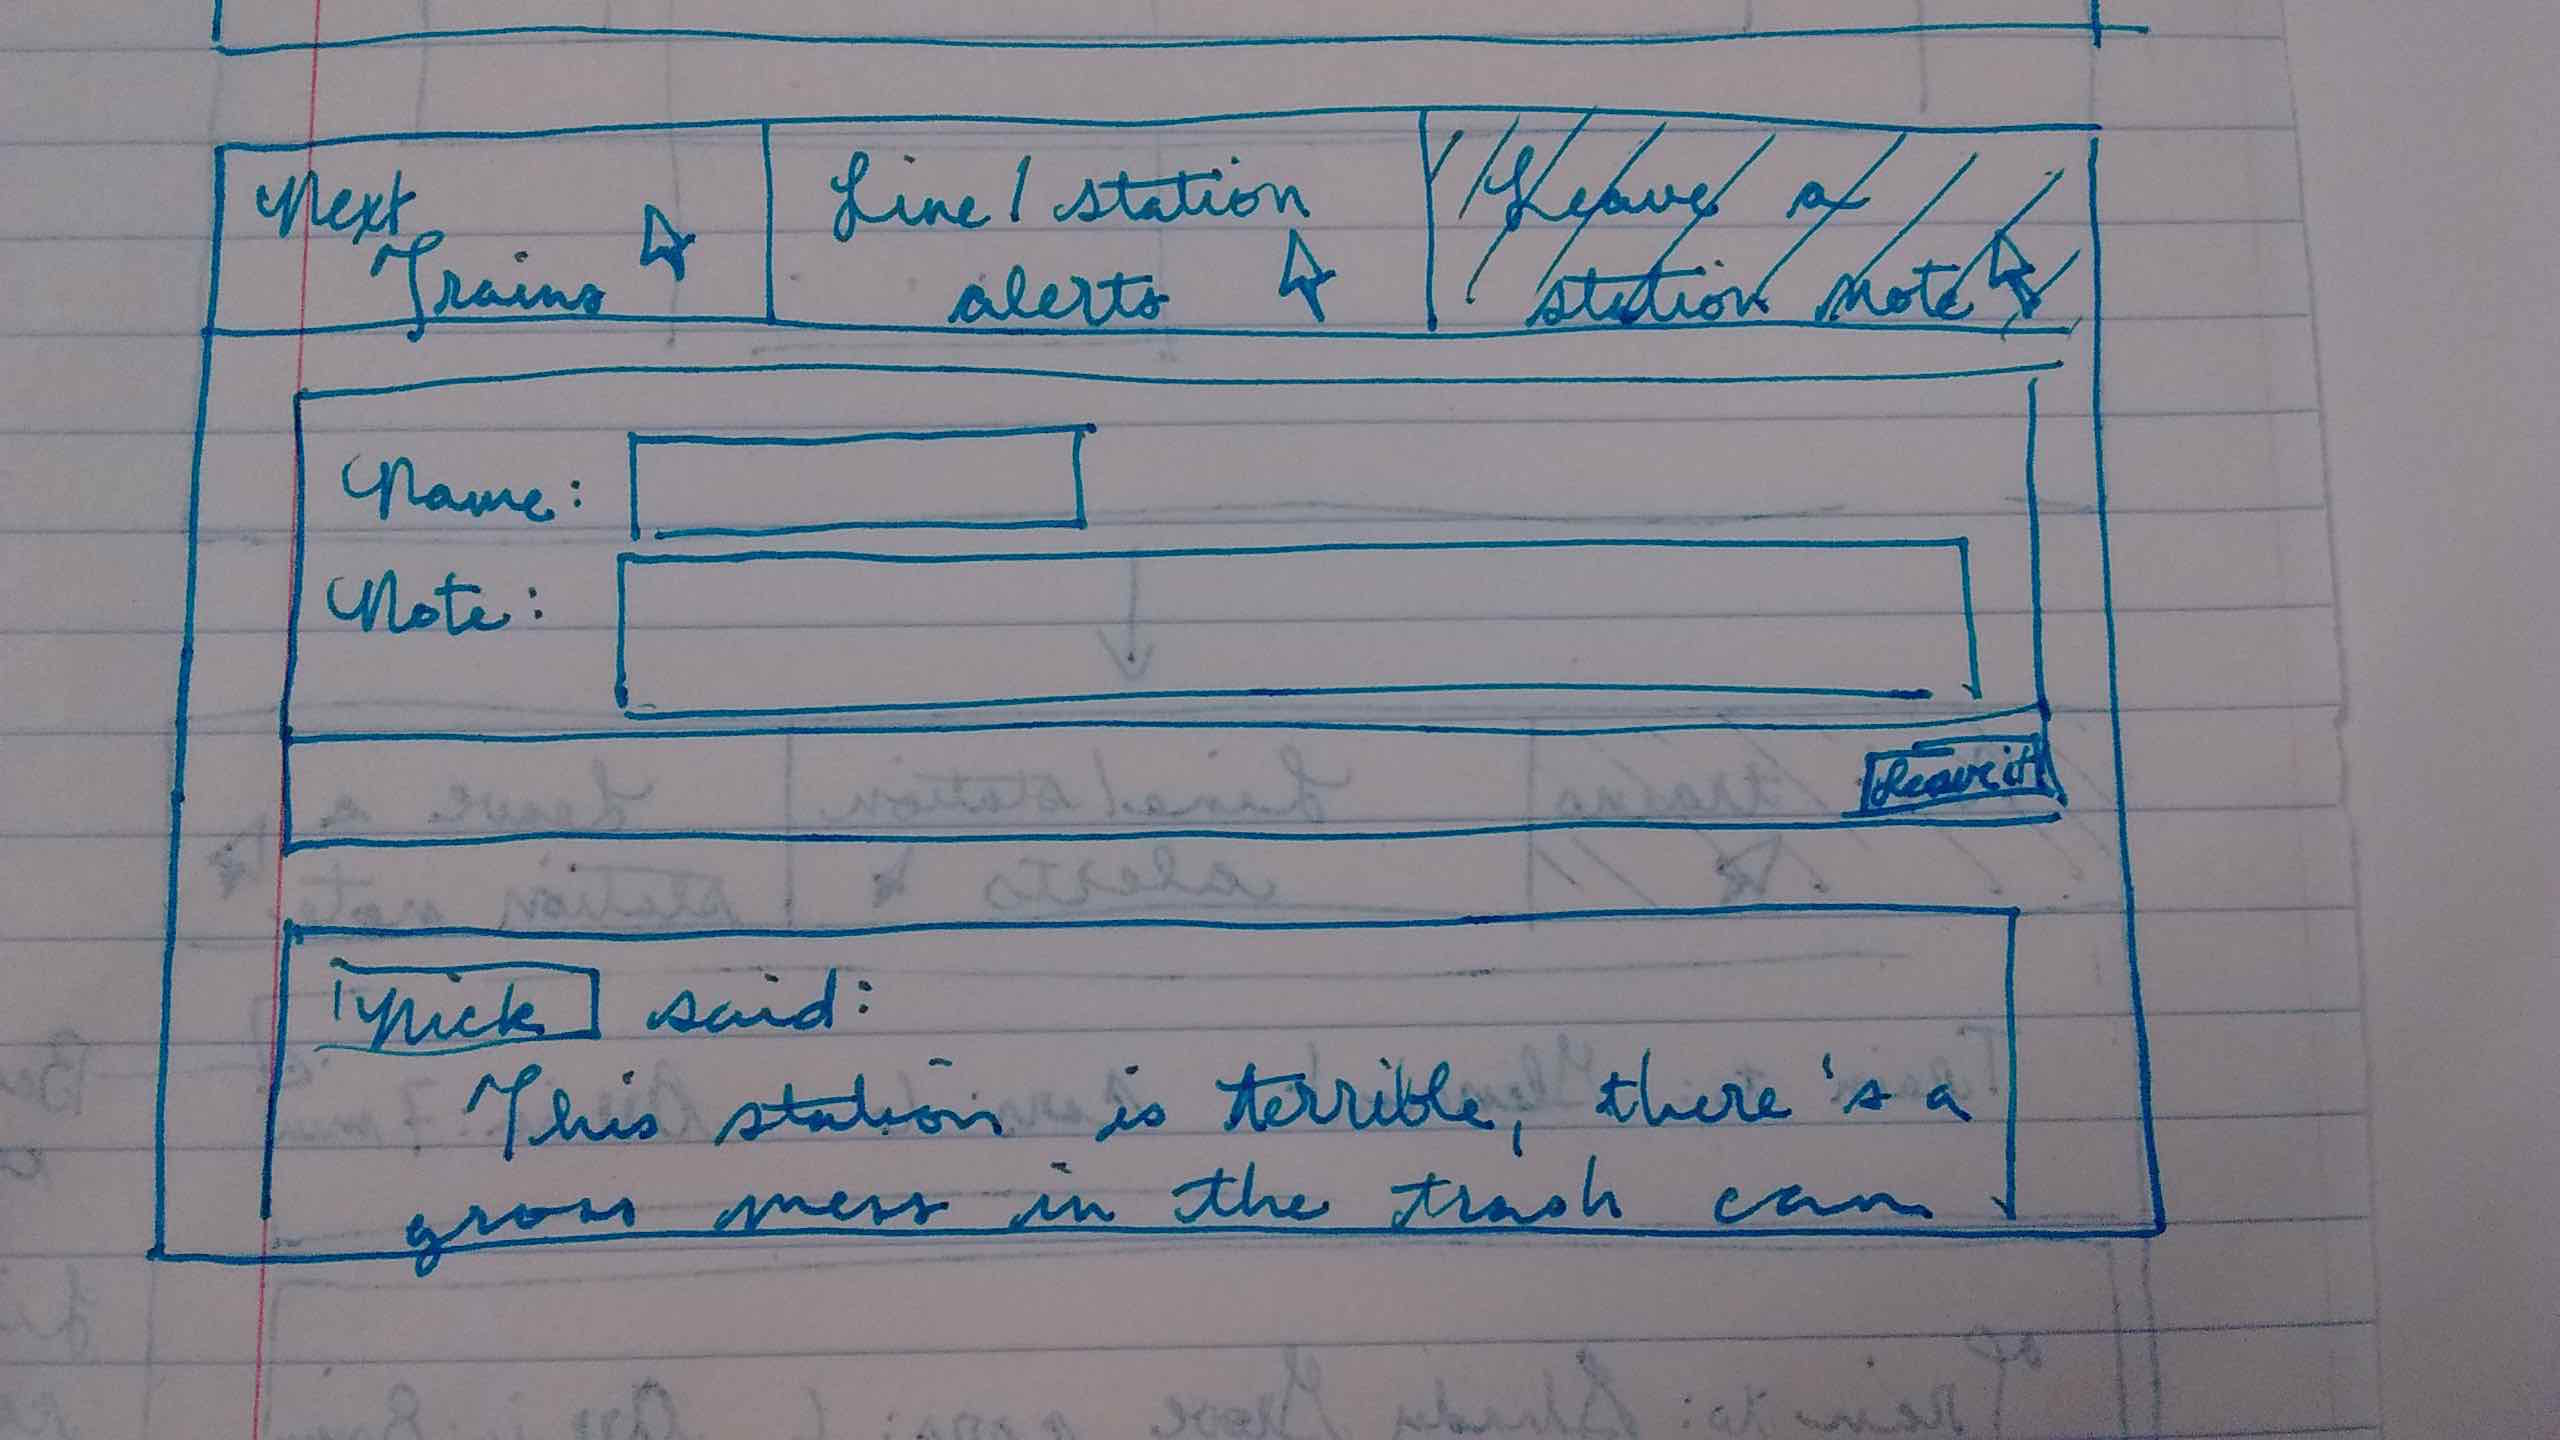 Next
Trains
Line / station
alerts
Leave a
station note
Name:
Note:
Leave it
Nick said:
This station is terrible, there's a
gross mess in the trash can